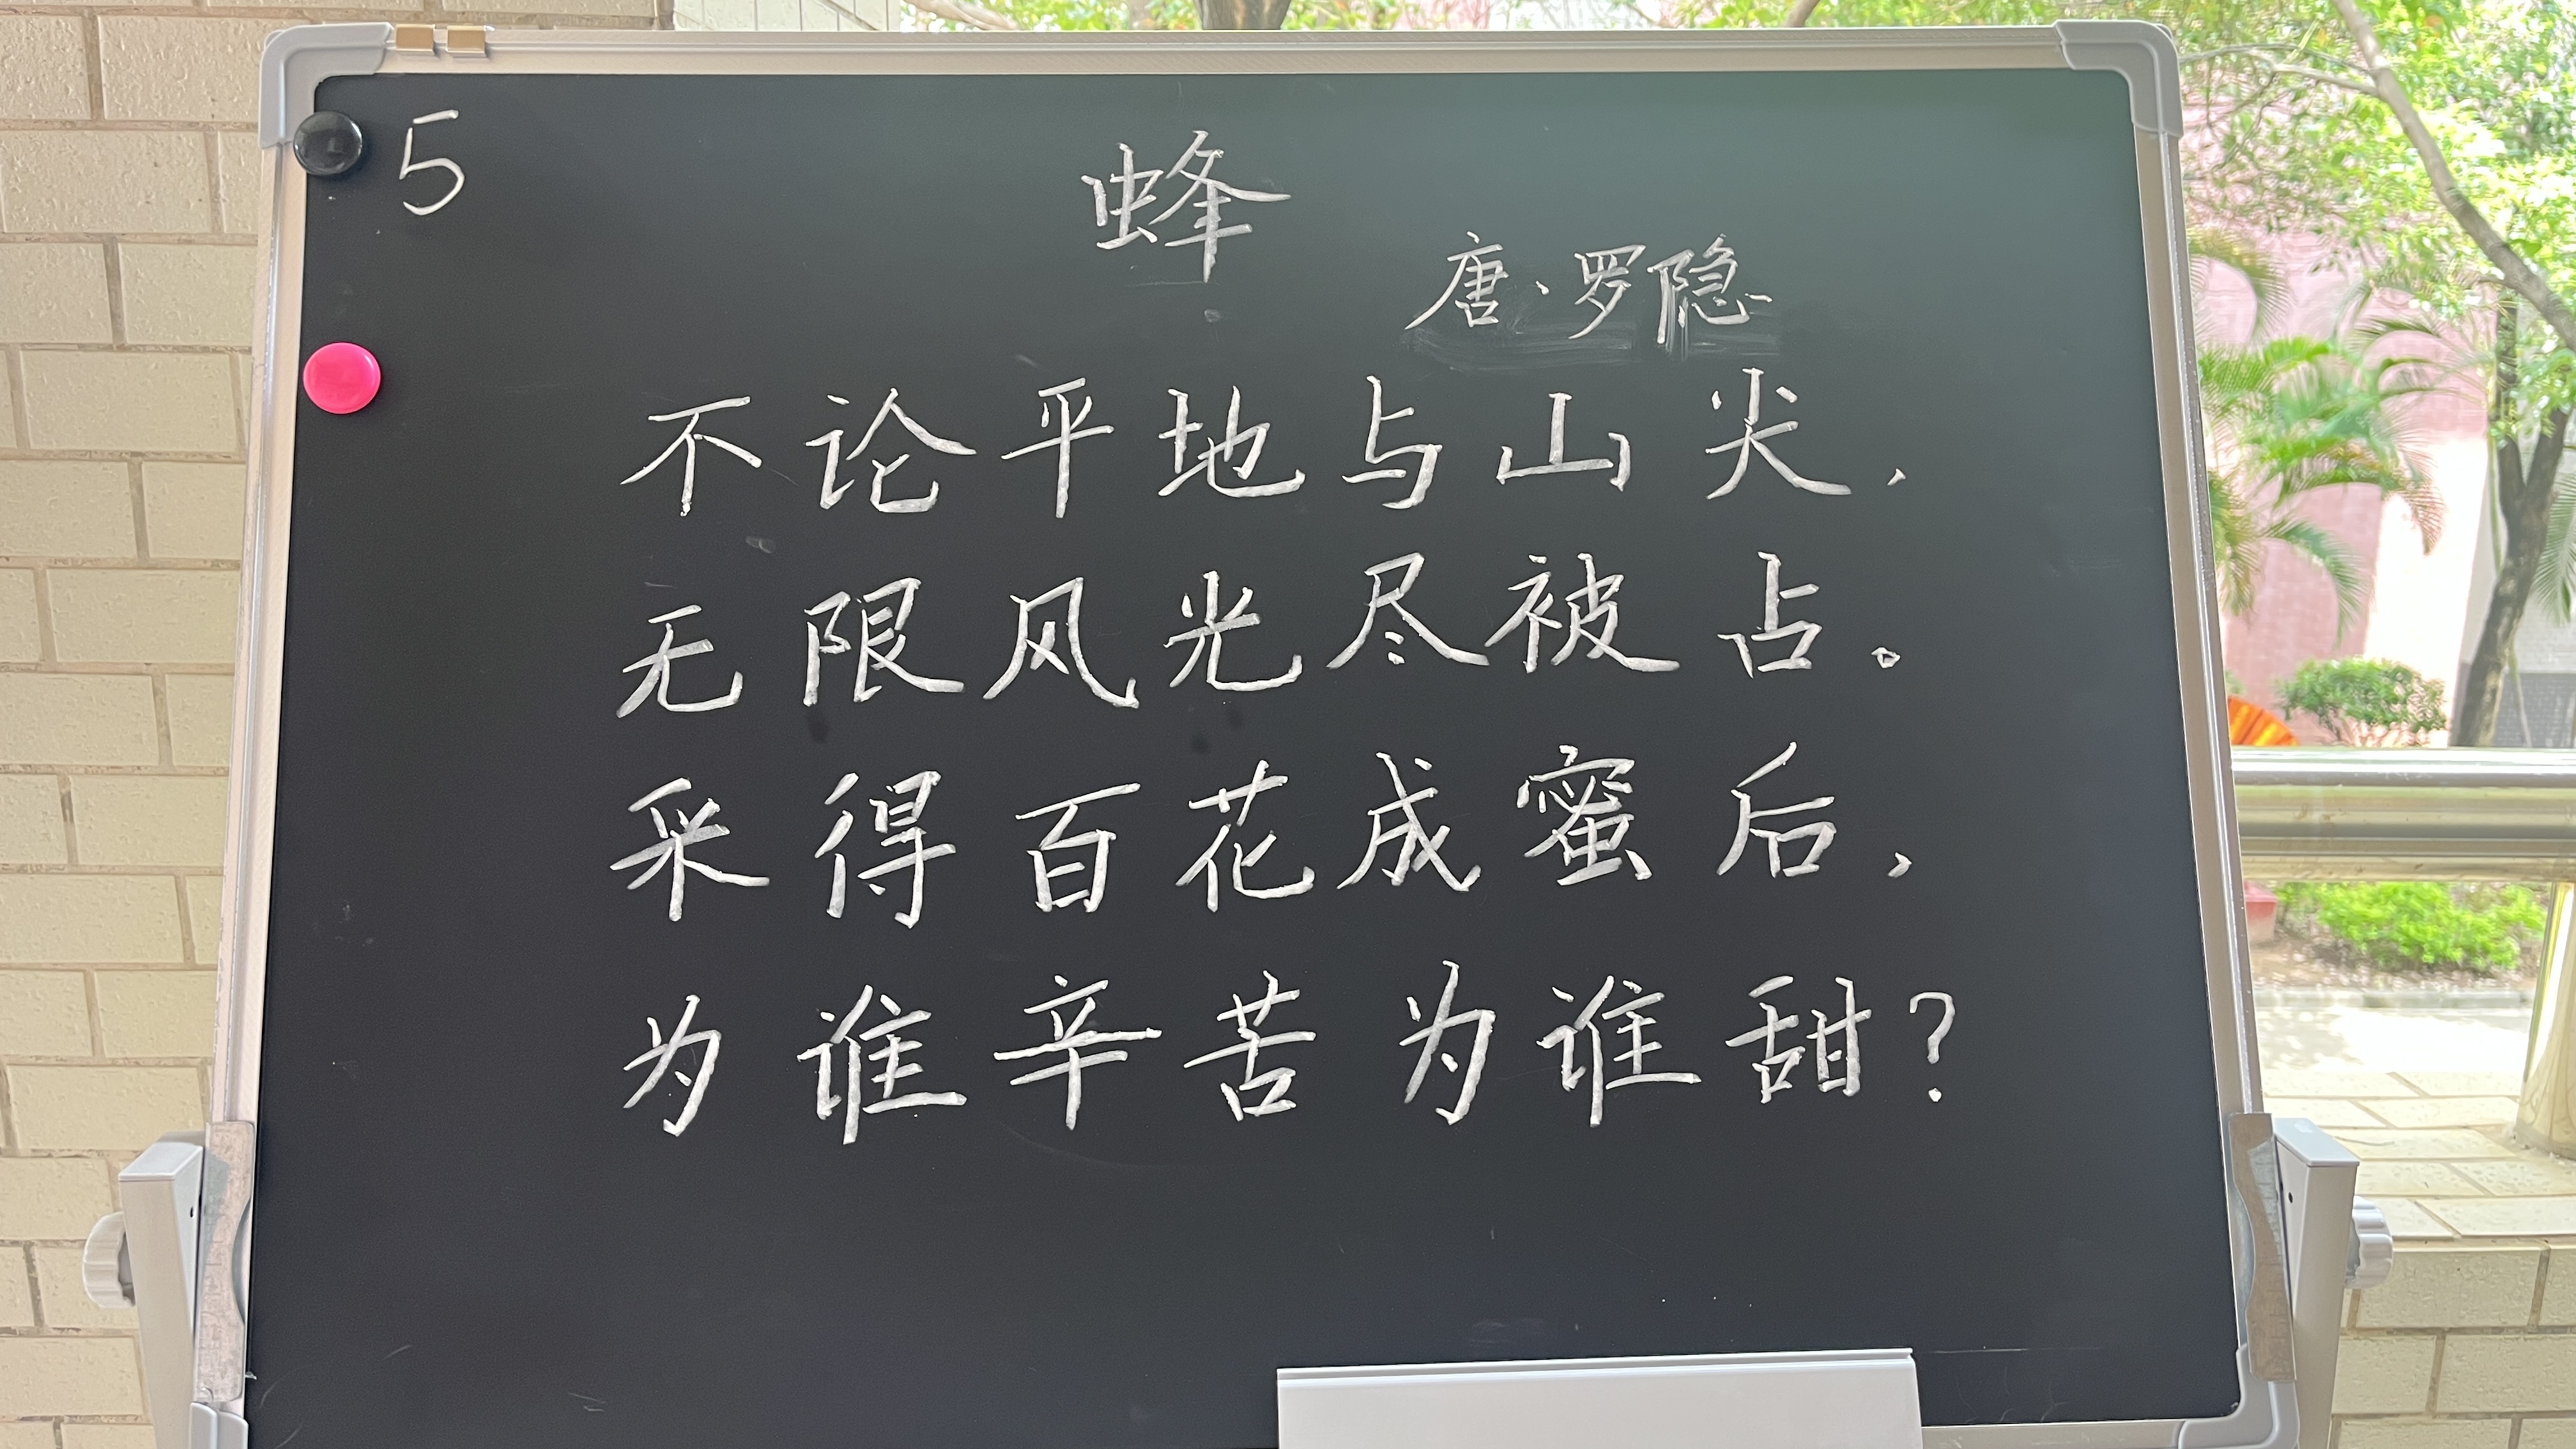 5
蜂
唐·罗隐
不论平地与山尖，
无限风光尽被占。
采得百花成蜜后，
为谁辛苦为谁甜？